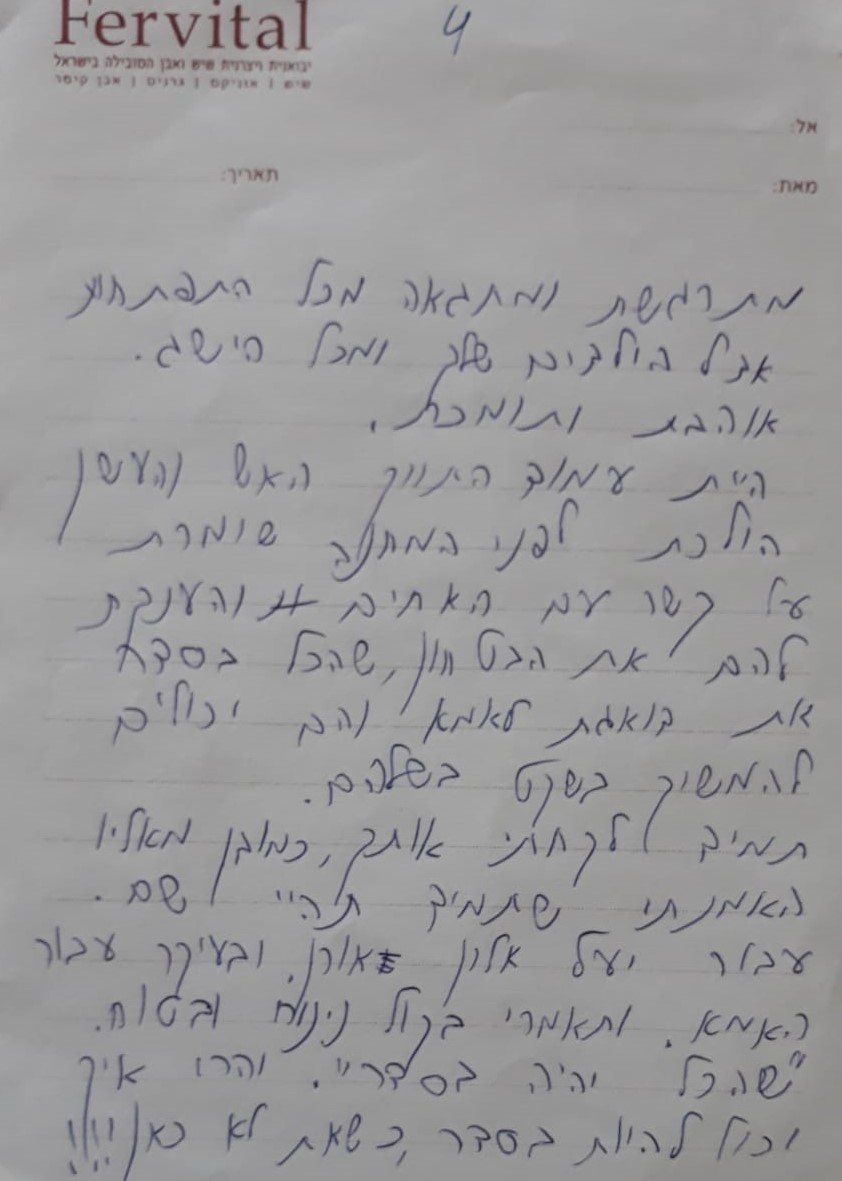 Fervital
4
יבואנית ויצרנית שיש ואבן המובילה בישראל
שיש | אוניקס | גרניט | אבן קיסר
אל:
תאריך:
מאת:
מתרגשת ומתגאה מכל התפתחות
אצל הילדים שלך ומכל הישג.
אוהבת ותומכת.
היית עמוד התווך האש והעשן
הולכת לפני המחנה שומרת
על קשר עם האחים והענקת
להם את הבטחון, שהכל בסדר
את דואגת לאמא והם יכולים
להמשיך בשקט בשלהם.
תמיד לקחתי אותך, כמובן מאליו
האמנתי שתמיד תהיי שם.
עבור יעל אלון אורן, ובעיקר עבור
האמא. ותאמרי בקול נינוח ובטוח.
"שהכל יהיה בסדר". והרי איך
יכול להיות בסדר, כשאת לא כאן !!!